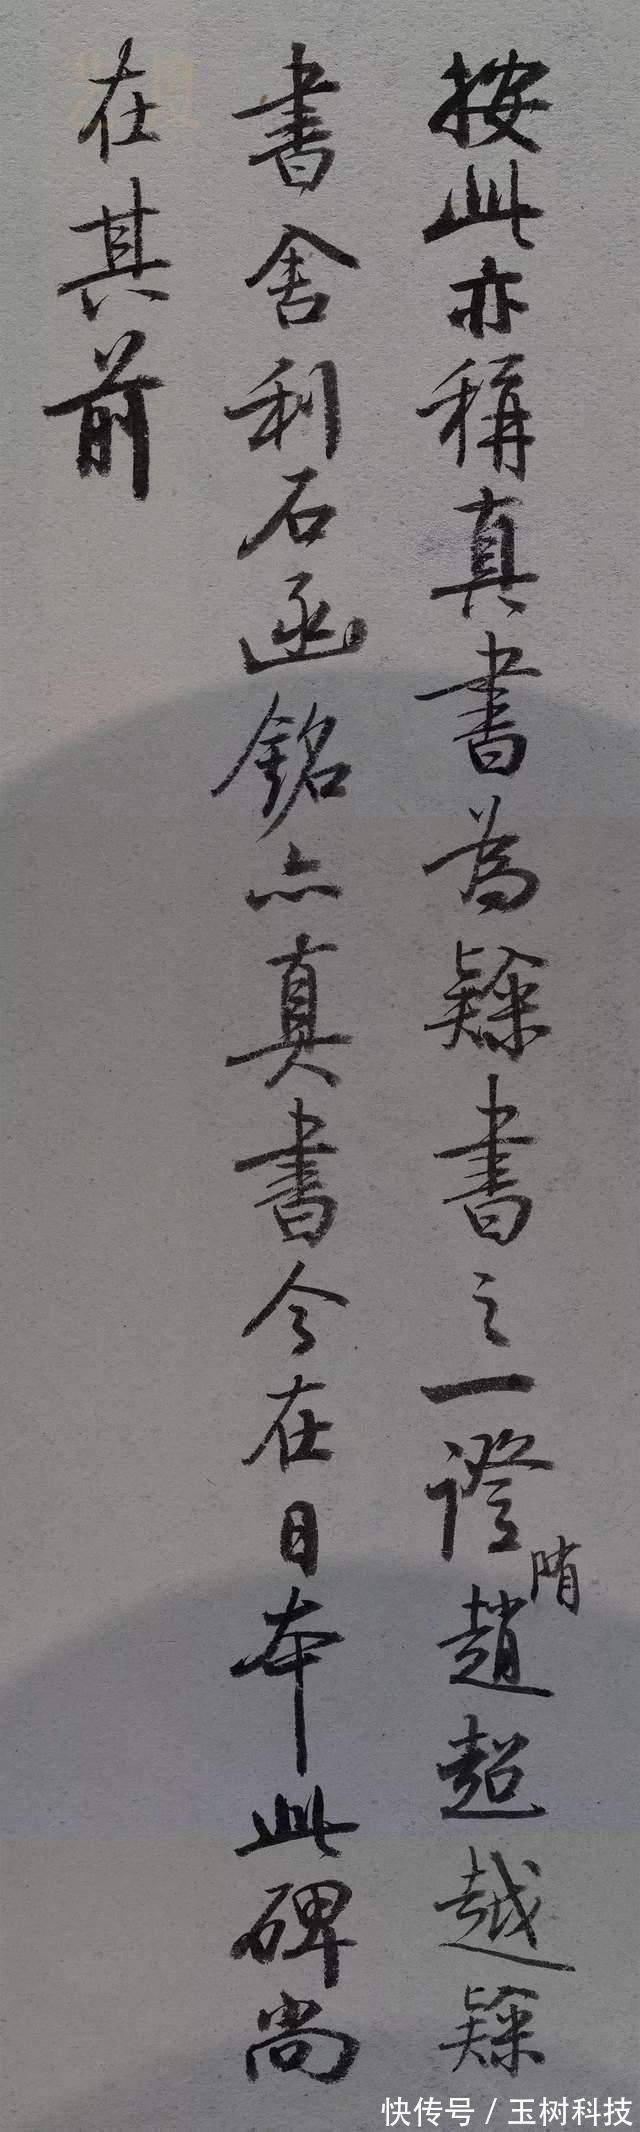 按此亦稱真書為隸書之一證隋趙超越隸
書舍利石函銘亦真書今在日本此碑尚
在其前
快传号 / 玉树科技